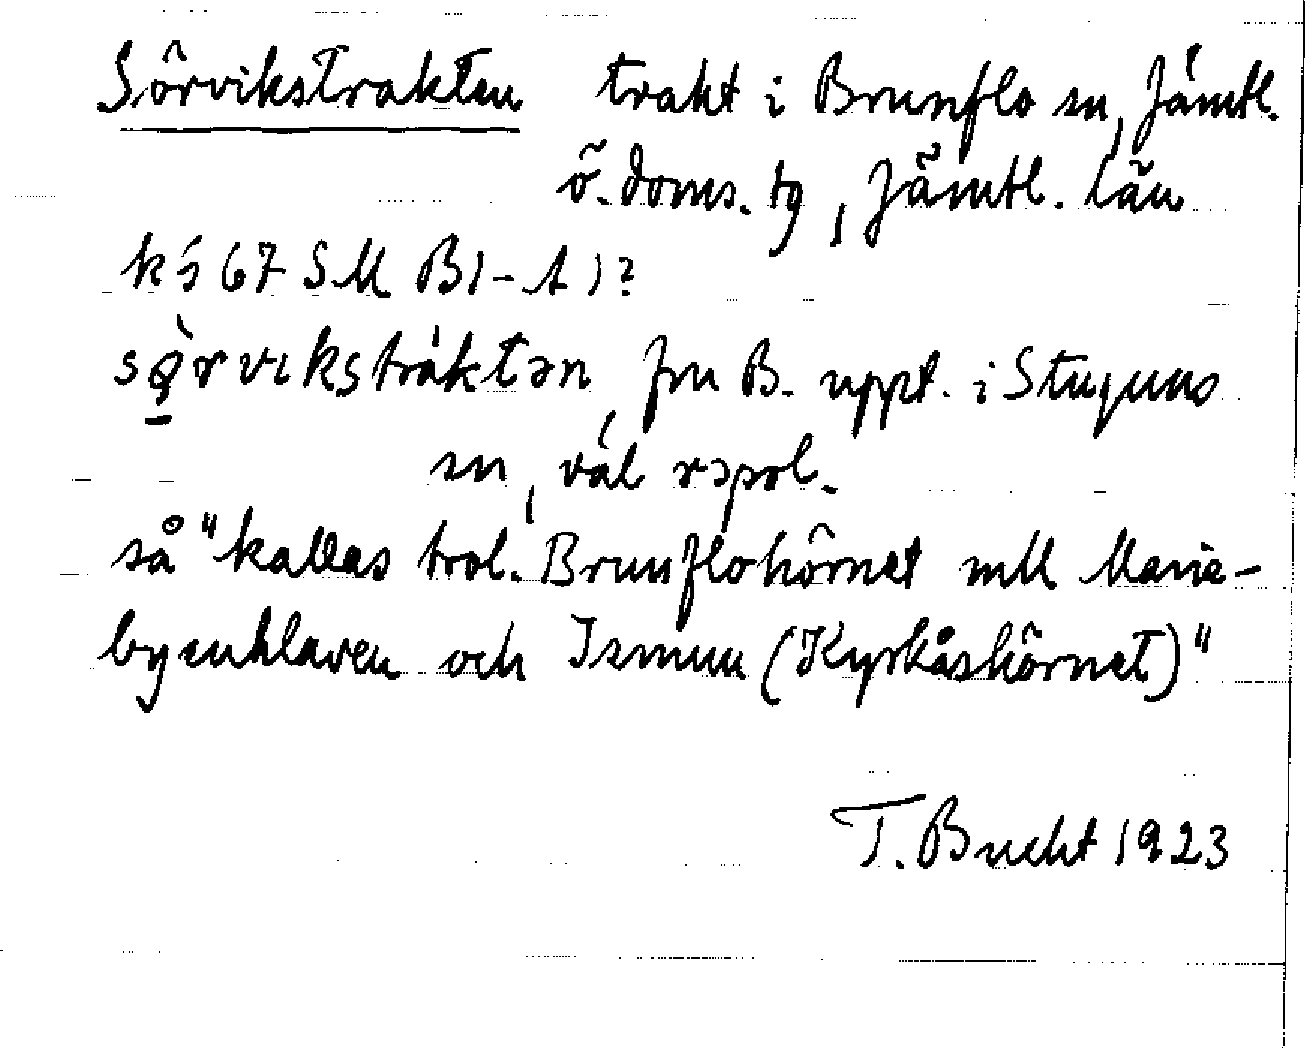 Sörvikstrakten trakt i Brunflo sn, Jämtl.
ö. doms. tg, Jämtl. län
67 SM B1-A1?
frn B. uppt. i Stuguns
sn, väl rspol.
så "kallas trol. Brunflohörnet mll Marie-
byenklaven och Ismun (Kyrkåshörnet)"
T. Bucht 1923